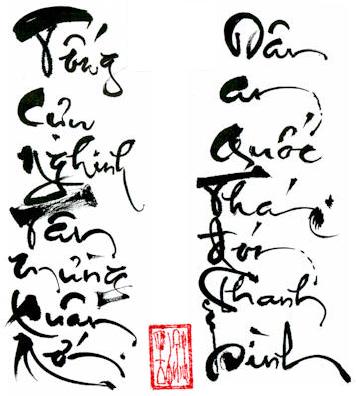 Tống
Cựu
Nghinh
Tân
mừng
Xuân
Dân
an
Quốc
Thái
đón
Thanh
Bình